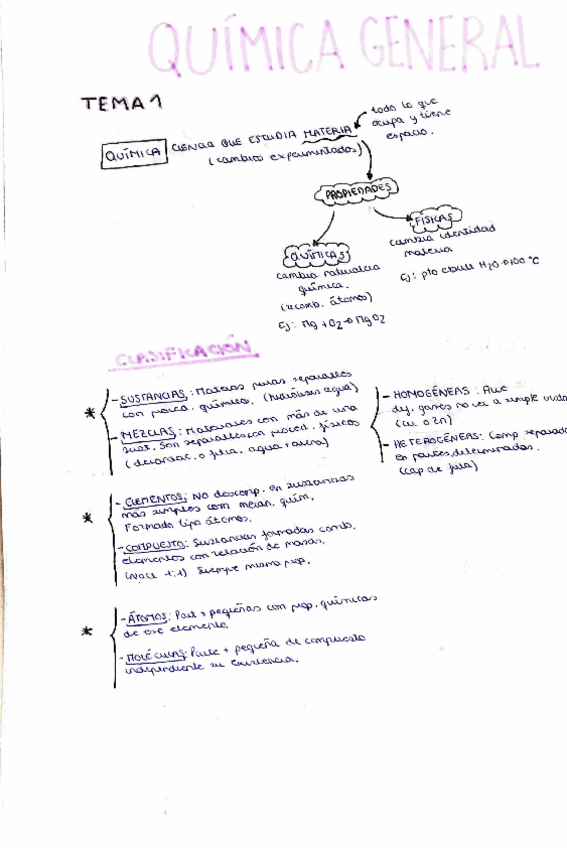 QUÍMICA GENERAL
TEMA 1
QUÍMICA CIENCIA QUE ESTUDIA MATERIA
(cambios experimentados)
todo lo que
ocupa y tiene
espacio.
PROPIEDADES
QUÍMICAS
cambia naturaleza
química.
(recomb. átomos)
Ej: Mg + O2 → MgO2
FÍSICAS
cambia identidad
materia
Ej: pto ebull H2O → 100 °C
CLASIFICACIÓN
* - SUSTANCIAS: Materias puras separables
con proced. químicos. (hidrólisis agua)
- MEZCLAS: Materiales con más de una
sust. Son separables con proced. físicos
(decantac. o filtra. agua + arena)
- HOMOGÉNEAS:
dif. partes no ve a simple vista
- HETEROGÉNEAS: Comp separado
en partes determinadas.
* - ELEMENTOS: No descomp. en sustancias
más simples com mecan. quím.
Formado tipo átomos.
- COMPUESTO: Sustancias formadas comb.
elementos con relación de masas.
Siempre misma prop.
* - ÁTOMOS: Part + pequeñas con prop. químicas
de ese elemento.
- MOLÉCULAS: Parte + pequeña de compuesto
independiente su existencia.